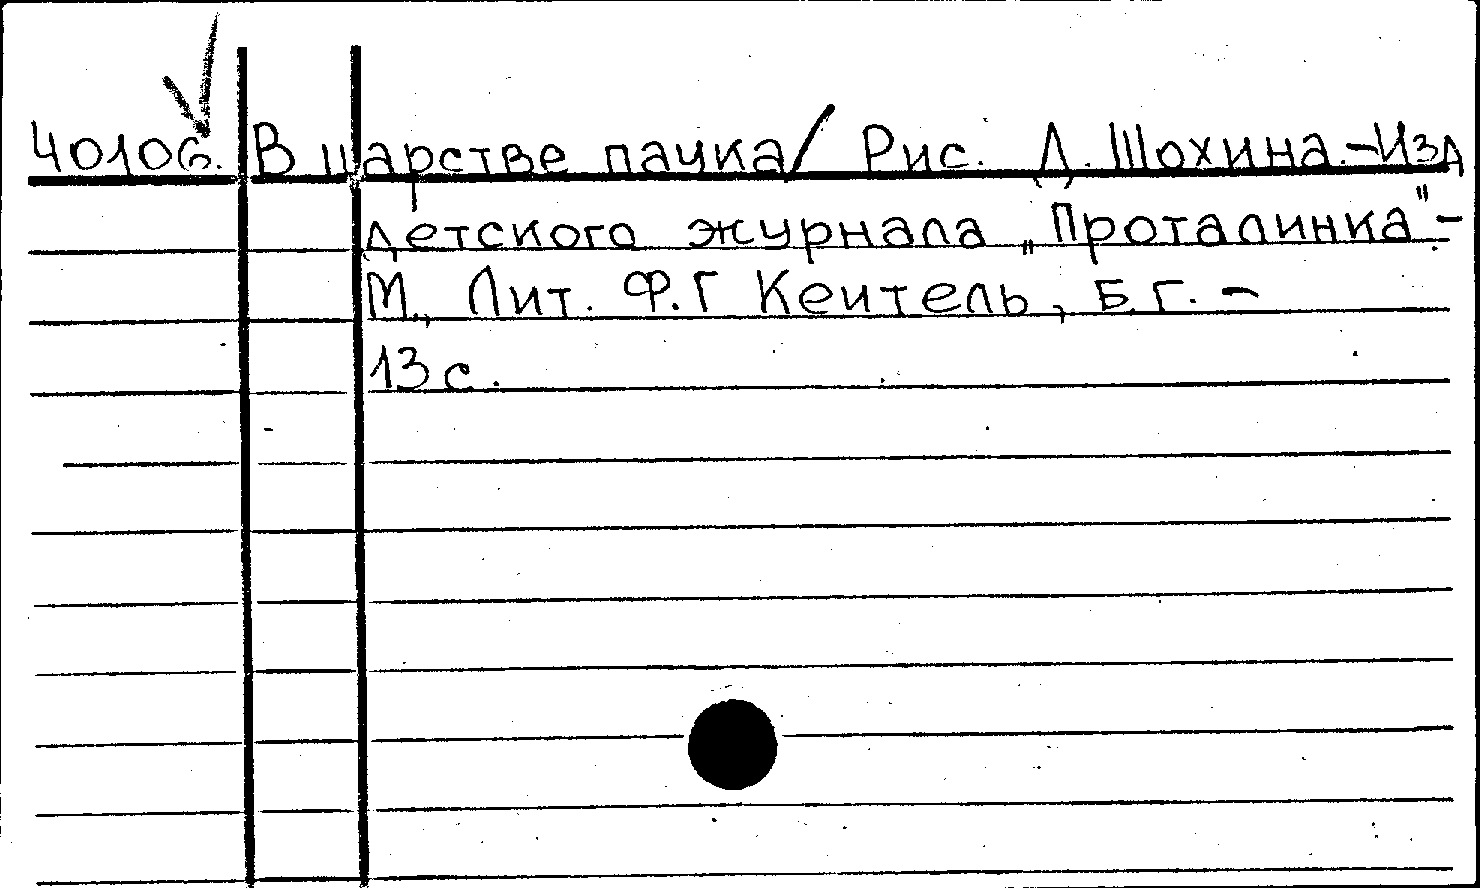 40106. В царстве паука / Рис. Д. Шохина.-Изд
детского журнала „Проталинка"-
М., Лит. Ф.Г Кеитель, Б.Г. -
13 с.